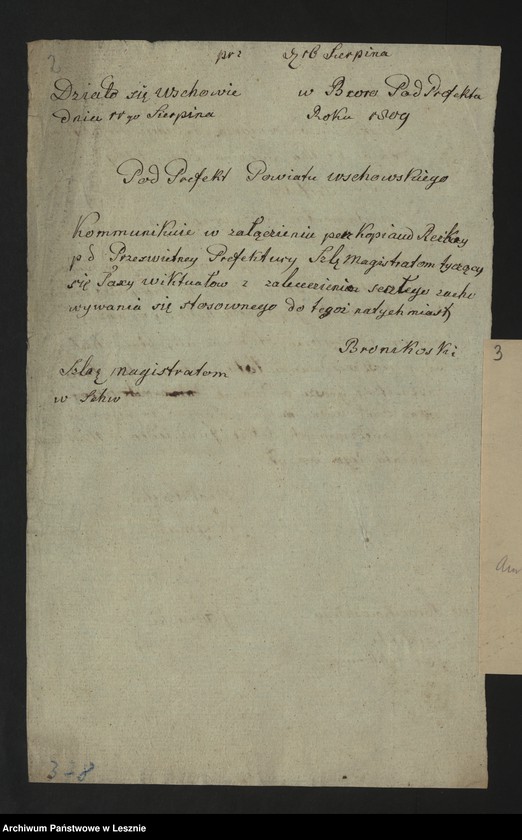 2
prz d 16 Sierpina
Działo się Wschowie w Bioro Pod Prefekta
dnia 11go Sierpina Roku 1809
Pod Prefekt Powiatu wschowskiego
Kommunikuie w załączeniu per kopiaud
pd Prześwietney Prefektury Szlą Magistratom tyczący
się Taxy wiktuałow z zaleceniem scisłego zacho
wywania się stosownego do tegoż natychmiast
Bronikoski
Szlag magistratom
w Szkw
3
3-8
Archiwum Państwowe w Lesznie